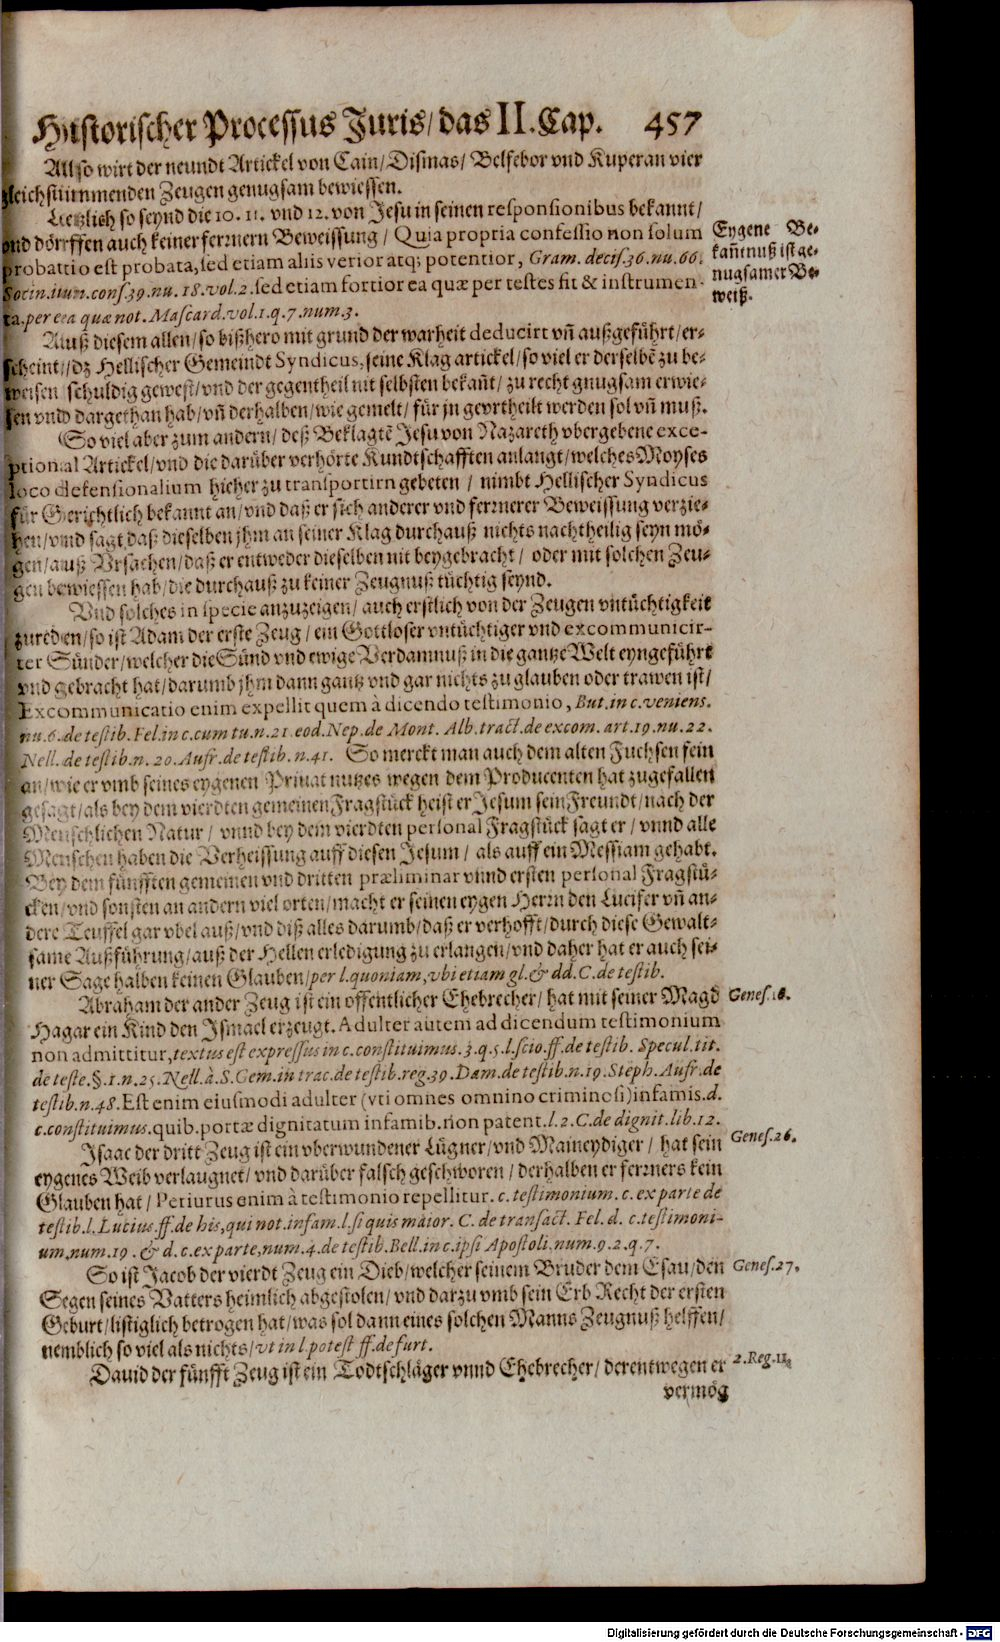 Historischer Processus Juris/ das II. Cap. 457
Allso wirt der neundt Artickel von Cain/ Dismas/ Belsebor vnd Kuperan vier
gleichstimmenden Zeugen genugsam bewiessen.
Letzlich so seynd die 10. 11. vnd 12. von Jesu in seinen responsionibus bekannt/
vnd dörffen auch keiner fernern Beweissung/ Quia propria confessio non solum
probattio est probata, sed etiam aliis verior atq; potentior, Gram. decis. 36. nu. 66.
Socin. iun. cons. 39. nu. 18. vol. 2. sed etiam fortior ea quæ per testes fit & instrumen-
ta. per ea quæ not. Mascard. vol. 1. q. 7. num. 3.
Eygene Be-
kañtnuß ist ge-
nugsamer Be-
weiß.
Auß diesem allen/ so bißhero mit grund der warheit deducirt vñ außgeführt/ er-
scheint/ dz Hellischer Gemeindt Syndicus, seine Klag artickel/ so viel er derselbẽ zu be-
weisen schuldig gewest/ vnd der gegentheil nit selbsten bekañt/ zu recht gnugsam erwie-
sen vnd dargethan hab/ vñ derhalben/ wie gemelt/ für jn geurtheilt werden sol vñ muß.
So viel aber zum andern/ deß Beklagtẽ Jesu von Nazareth vbergebene exce-
ptional Artickel/ vnd die darüber verhörte Kundtschafften anlangt/ welches Moyses
loco defensionalium hieher zu transportirn gebeten/ nimbt Hellischer Syndicus
für Gerichtlich bekannt an/ vnd daß er sich anderer vnd fernerer Beweissung verzie-
hen/ vnd sagt daß dieselben jhm an seiner Klag durchauß nichts nachtheilig seyn mö-
gen/ auß Vrsachen/ daß er entweder dieselben nit beygebracht/ oder mit solchen Zeu-
gen bewiessen hab/ die durchauß zu keiner Zeugnuß tüchtig seynd.
Vnd solches in specie anzuzeigen/ auch erstlich von der Zeugen vntüchtigkeit
zureden/ so ist Adam der erste Zeug/ ein Gottloser vntüchtiger vnd excommunicir-
ter Sünder/ welcher die Sünd vnd ewige Verdamnuß in die gantze Welt eyngeführt
vnd gebracht hat/ darumb jhm dann gantz vnd gar nichts zu glauben oder trawen ist/
Excommunicatio enim expellit quem à dicendo testimonio, But. in c. veniens.
nu. 6. de testib. Fel. in c. cum tu. n. 21. eod. Nep. de Mont. Alb. tract. de excom. art. 19. nu. 22.
Nell. de testib. n. 20. Aufr. de testib. n. 41. So merckt man auch dem alten Fuchsen fein
an/ wie er vmb seines eygenen Priuat nutzes wegen dem Producenten hat zugefallen
gesagt/ als bey dem vierdten gemeinen Fragstück heist er Jesum sein Freundt/ nach der
Menschlichen Natur/ vnnd bey dem vierdten personal Fragstück sagt er/ vnnd alle
Menschen haben die Verheissung auff diesen Jesum/ als auff ein Messiam gehabt.
Bey dem fünfften gemeinen vnd dritten præliminar vnnd ersten personal Fragstü-
cken/ vnd sonsten an andern viel orten/ macht er seinen eygen Herrn den Lucifer vñ an-
dere Teuffel gar vbel auß/ vnd diß alles darumb/ daß er verhofft/ durch diese Gewalt-
same Außführung/ auß der Hellen erledigung zu erlangen/ vnd daher hat er auch sei-
ner Sage halben keinen Glauben/ per l. quoniam, vbi etiam gl. & dd. C. de testib.
Abraham der ander Zeug ist ein offentlicher Ehebrecher/ hat mit seiner Magd
Genes. 16.
Hagar ein Kind den Ismael erzeugt. Adulter autem ad dicendum testimonium
non admittitur, textus est expressus in c. constituimus. 3. q. 5. l. scio. ff. de testib. Specul. tit.
de teste. §. 1. n. 25. Nell. à S. Gem. in trac. de testib. reg. 39. Dam. de testib. n. 19. Steph. Aufr. de
testib. n. 48. Est enim eiusmodi adulter (vti omnes omnino criminosi) infamis. d.
c. constituimus. quib. portæ dignitatum infamib. non patent. l. 2. C. de dignit. lib. 12.
Isaac der dritt Zeug ist ein vberwundener Lügner/ vnd Maineydiger/ hat sein
Genes. 26.
eygenes Weib verlaugnet/ vnd darüber falsch geschworen/ derhalben er ferrners kein
Glauben hat/ Periurus enim à testimonio repellitur. c. testimonium. c. ex parte de
testib. l. Lucius. ff. de his, qui not. infam. l. si quis maior. C. de transact. Fel. d. c. testimoni-
um, num. 19. & d. c. ex parte, num. 4. de testib. Bell. in c. ipsi Apostoli. num. 9. 2. q. 7.
So ist Jacob der vierdt Zeug ein Dieb/ welcher seinem Bruder dem Esau/ den
Genes. 27.
Segen seines Vatters heimlich abgestolen/ vnd darzu vmb sein Erb Recht der ersten
Geburt/ listiglich betrogen hat/ was sol dann eines solchen Manns Zeugnuß helffen/
nemblich so viel als nichts/ vt in l. potest ff. de furt.
Dauid der fünfft Zeug ist ein Todtschläger vnnd Ehebrecher/ derentwegen er
2. Reg. 11.
vermög
Digitalisierung gefördert durch die Deutsche Forschungsgemeinschaft - DFG